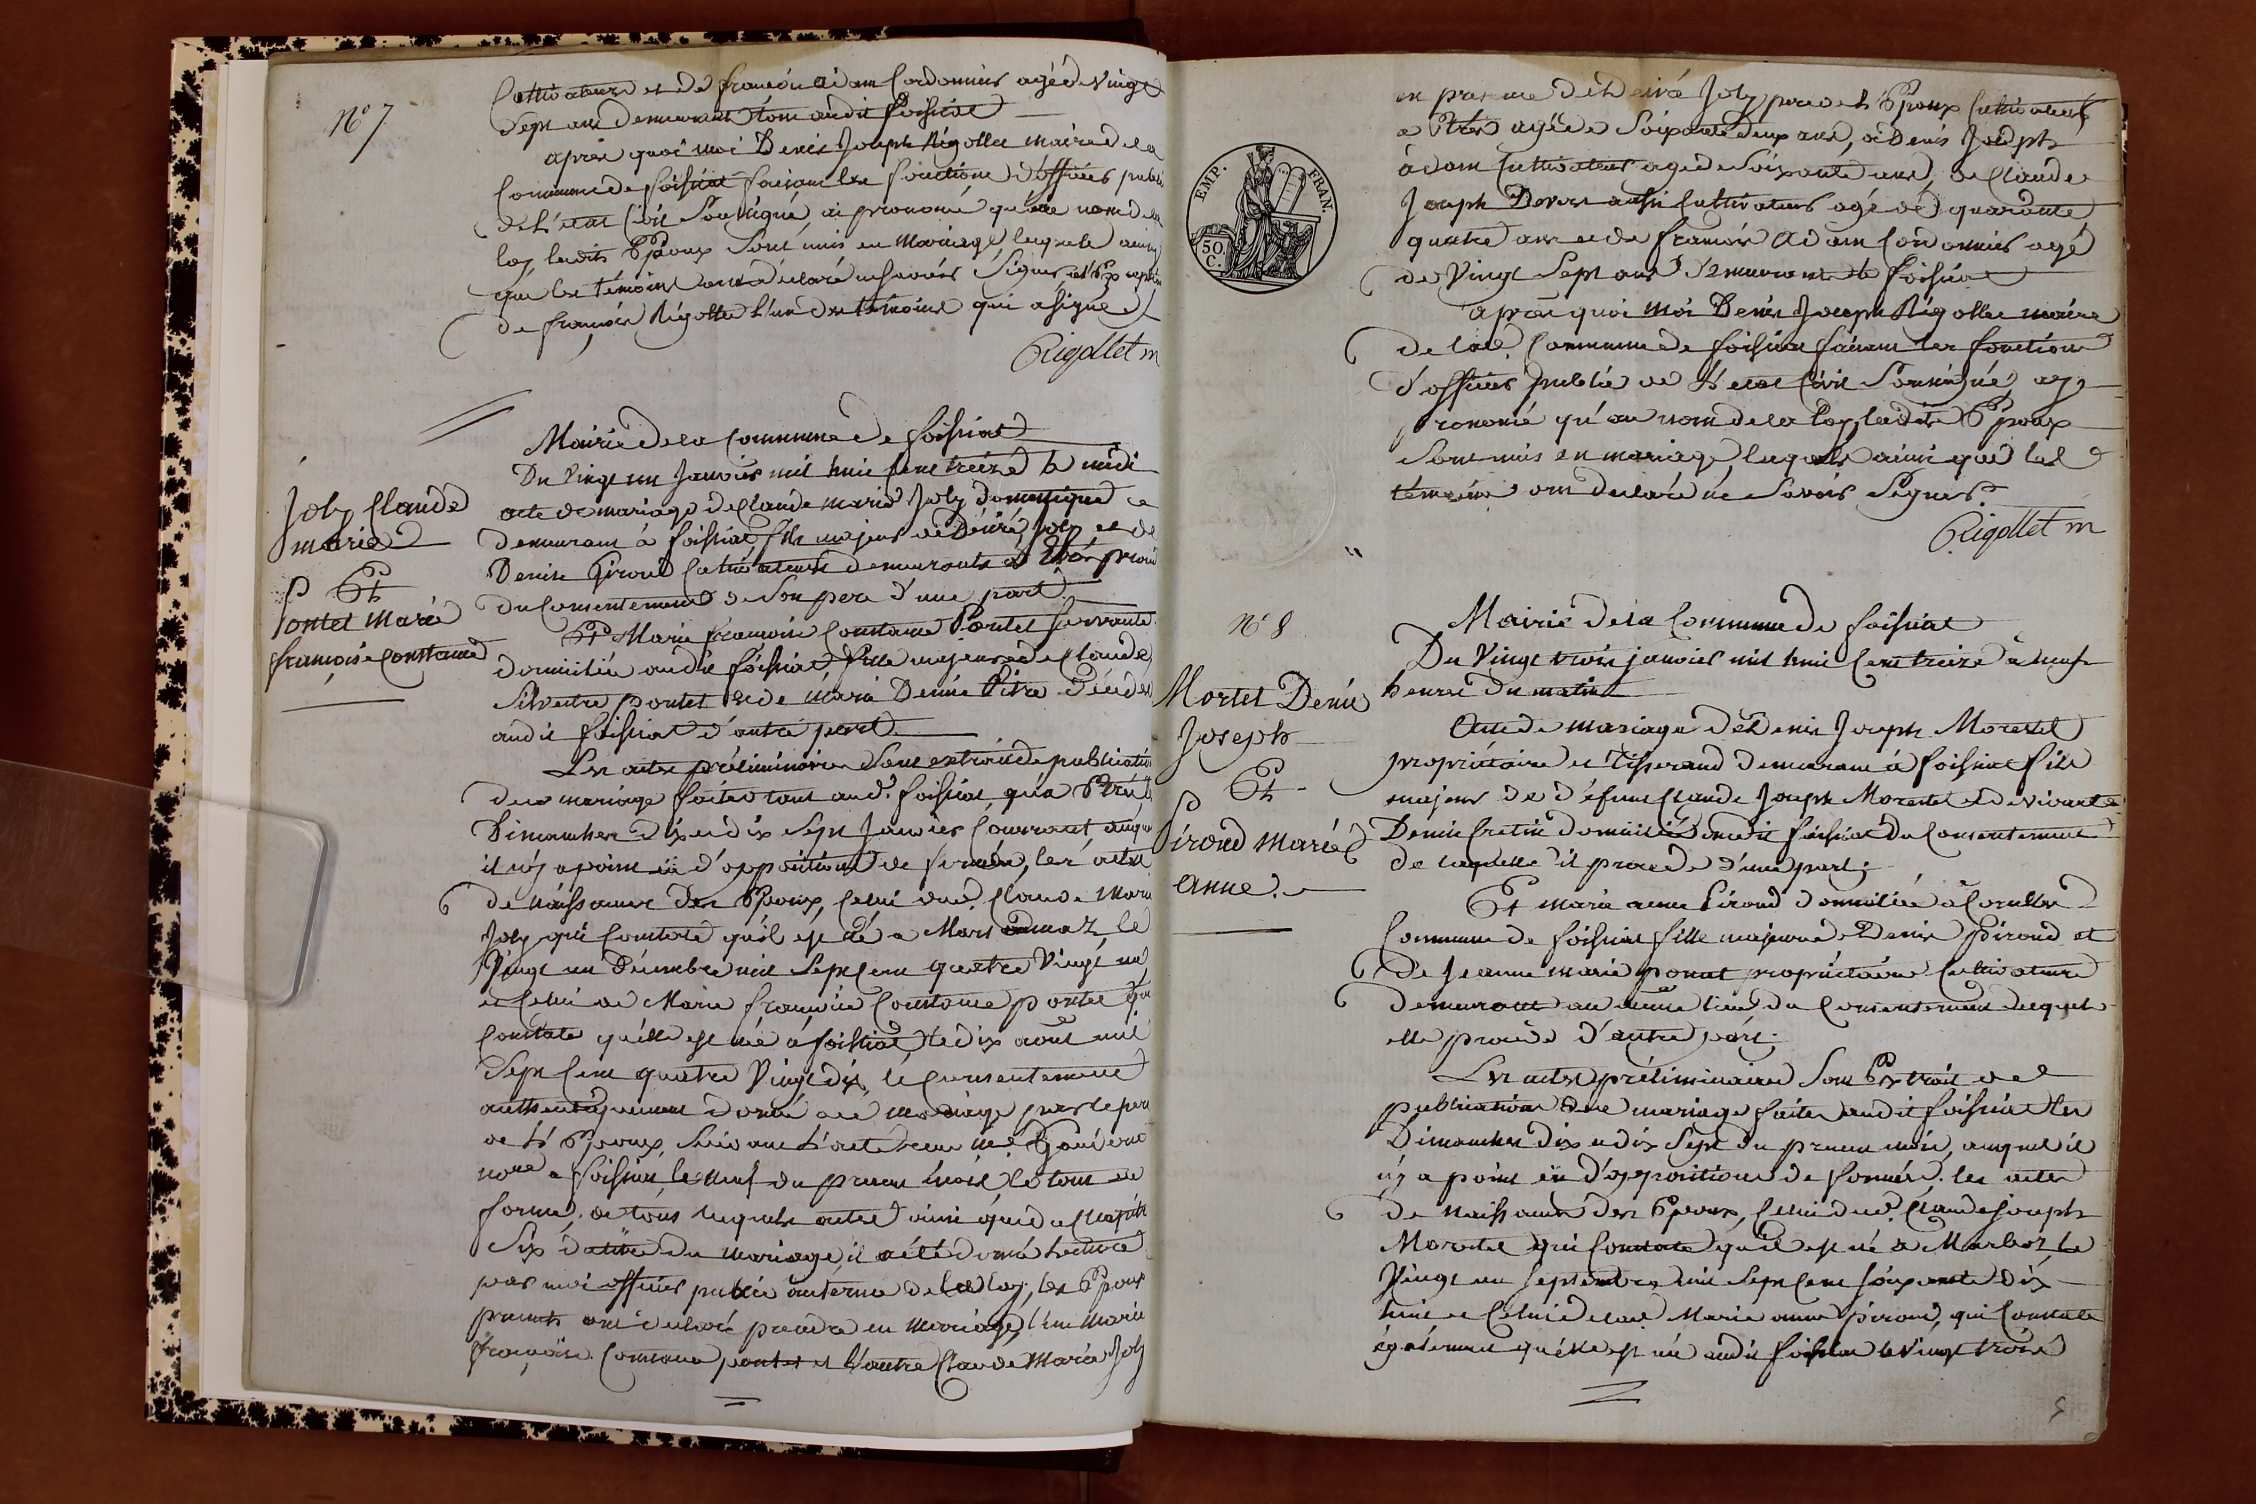 N° 7
Cultivateur et de françois adam Cordonnier agé de vingt
Sept ans demeurant tous audit foissiat
après quoi moi Denis Joseph Rigollet maire de la
Commune de foissiat faisant les fonctions d'officier public
de l'état Civil Soussigné, ai prononcé qu'au nom de la
loy, lesdits Epoux Sont unis en mariage, lesquels ainsy
que les témoins ont déclaré ne savoir Signer,
de françois Rigollet l'un des témoins qui a signé
Rigollet m
Joly Claude
marie
Et
Pontet marie
françoise Constance
Mairie de la Commune de foissiat
Du vingt un Janvier mil huit Cent treize à midi
acte de mariage de Claude marie Joly domestique
demeurant à foissiat fils majeur de Désiré Joly et de
Denise Giroud Cultivateurs demeurants à
du Consentement de Son pere d'une part
Et Marie françoise Constance Pontet Servante
domiciliée audit foissiat fille majeure de Claude
Silvestre pontet et de marie Denise Pitre décédés
audit foissiat d'autre part
Les actes préliminaires Sont extrait de publication
de ce mariage faites tant aud. foissiat, qu'à
Dimanches dix et dix Sept Janvier Courrant auquel
il n'y a point eü d'opposition de formée, les actes
de naissance des Epoux, Celui dud. Claude Marie
Joly qui Constate qu'il est né à Marsonnaz le
vingt un Décembre mil Sept Cent quatre vingt un
et Celui de Marie françoise Constance pontet qui
Constate qu'elle est née à foissiat le dix août mil
Sept Cent quatre vingt dix, le Consentement
authentiquement donné au mariage par le pere
de l'Epoux, Suivant l'acte recu Me
nore à foissiat, le neuf du présent mois le tout en
forme, de tous lesquels actes ainsi que du Chapitre
Six du titre du mariage il a été donné lecture
par moi officier public au terme de la loy, les Epoux
présents ont déclaré prendre en mariage, l'un Marie
françoise Constance pontet et l'autre Claude Marie Joly
EMP. FRAN.
50 C.
en présence de Désiré Joly pere de l'Epoux Cultivateur
à agé de Soixante deux ans, de Denis Joseph
adam Cultivateur agé de Soixante ans, de Claude
Joseph Devers aussi Cultivateur agé de quarante
quatre ans et de françois adam Cordonnier agé
de vingt Sept ans demeurant à foissiat
après quoi moi Denis Joseph Rigollet maire
de lad. Commune de foissiat faisant les fonctions
d'officier public de l'état Civil Soussigné, ay
prononcé qu'au nom de la loy, lesdits Epoux
Sont unis en mariage, lesquels ainsi que les
témoins ont déclaré ne Savoir Signer.
Rigollet m
N° 8
Mortel Denis
Joseph
Et
Piroud marie
anne
Mairie de la Commune de foissiat
Du vingt trois janvier mil huit Cent treize à neuf
heures du matin
Acte de mariage de Denis Joseph Morestel
propriétaire et Tisserand demeurant à foissiat fils
majeur de défunt Claude Joseph Morestel et de vivante
Denise Cretin domiciliée audit foissiat du Consentement
de laquelle il procède d'une part;
Et marie anne Piroud domiciliée à Cornelle
Commune de foissiat fille majeure de Denis Piroud et
de Jeanne marie ponet propriétaires Cultivateurs
demeurant au même lieu du Consentement desquels
elle procède d'autre part.
Les actes préliminaires Sont Extrait de
publication de ce mariage faites audit foissiat les
Dimanches dix et dix Sept du présent mois, auquel il
n'y a point eü d'opposition de formée. les actes
de naissance des Epoux, Celui dud. Claude Joseph
Morestel qui Constate qu'il est né à Marboz le
vingt un Septembre mil Sept Cent Soixante dix
huit et Celui de lad. Marie anne Piroud, qui Constate
également qu'elle est née audit foissiat le vingt trois